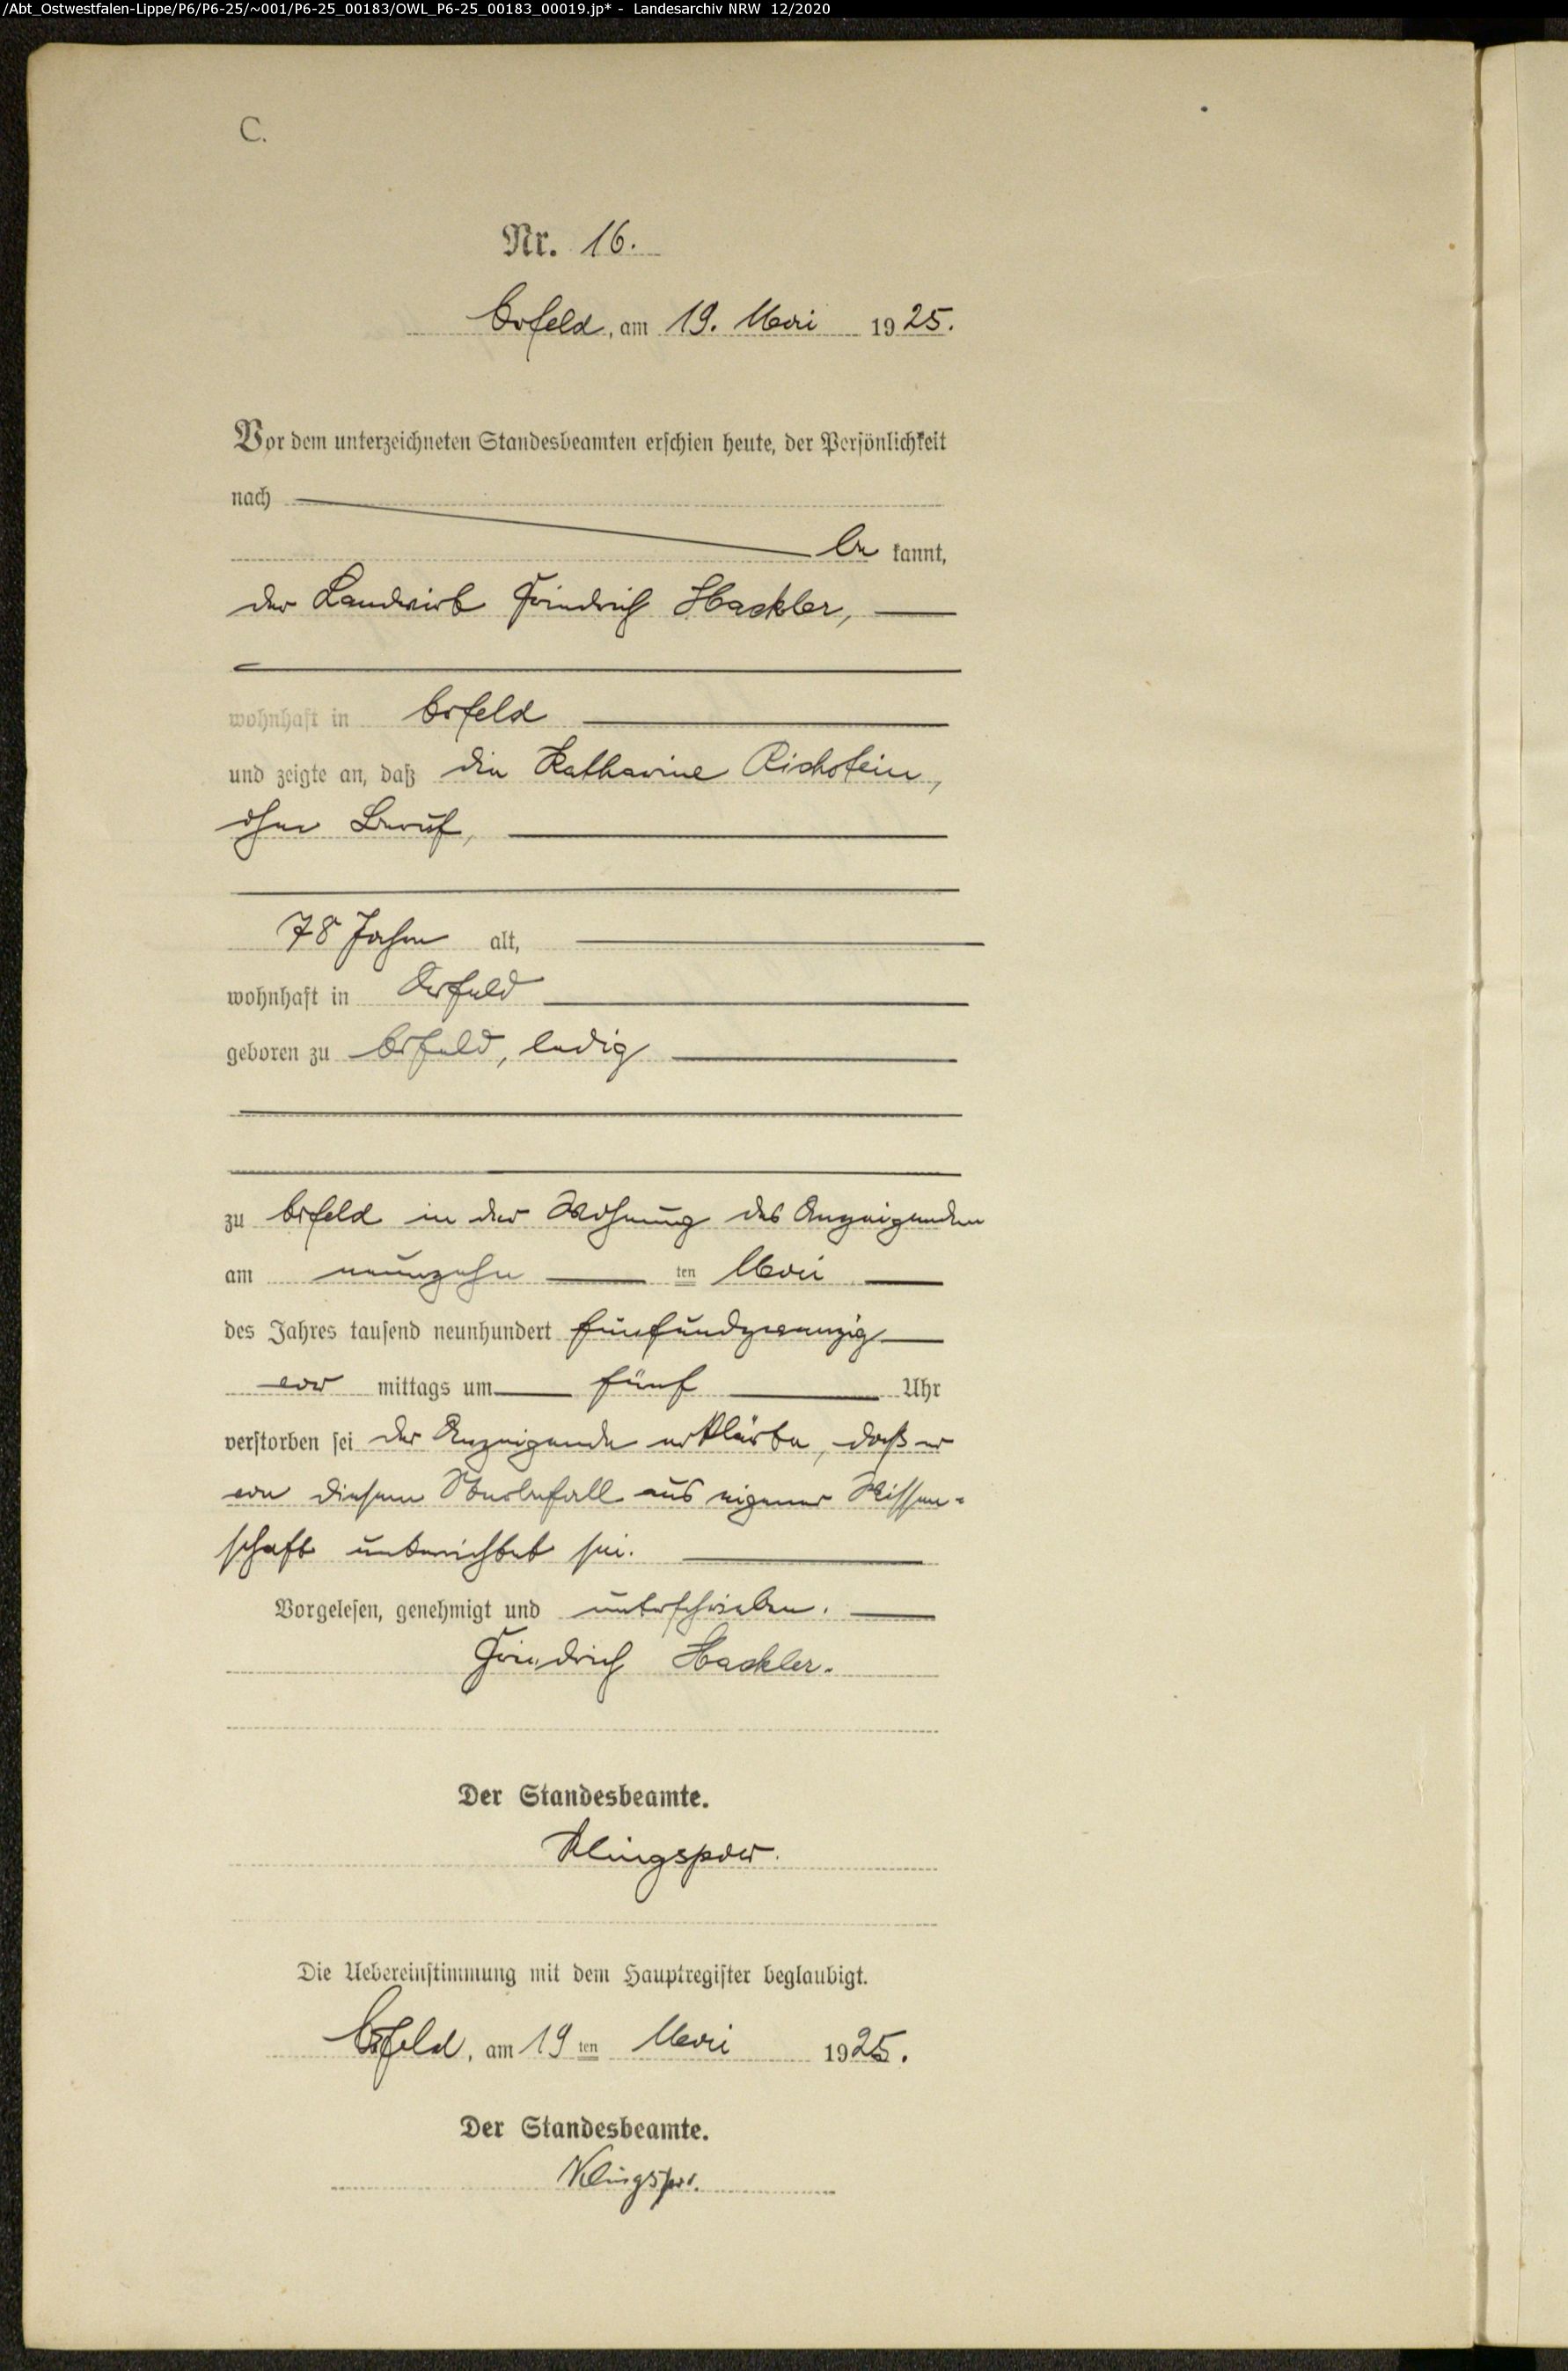 /Abt_Ostwestfalen-Lippe/P6/P6-25/~001/P6-25_00183/OWL_P6-25_00183_00019.jp* - Landesarchiv NRW 12/2020
C.
Nr. 16.
Erfeld, am 19. Mai 1925.
Vor dem unterzeichneten Standesbeamten erschien heute, der Persönlichkeit
nach
be kannt,
der Landwirt Friedrich Hackler,
wohnhaft in Erfeld
und zeigte an, daß die Katharine Richstein,
ohne Beruf,
78 Jahre alt,
wohnhaft in Erfeld
geboren zu Erfeld, ledig
zu Erfeld in der Wohnung des Anzeigenden
am neunzehn ten Mai
des Jahres tausend neunhundert fünfundzwanzig
vor mittags um fünf Uhr
verstorben sei der Anzeigende erklärte, daß er
von diesem Sterbefall aus eigener Wissen-
schaft unterrichtet sei.
Vorgelesen, genehmigt und unterschrieben.
Friedrich Hackler.
Der Standesbeamte.
Klingspor.
Die Uebereinstimmung mit dem Hauptregister beglaubigt.
Erfeld, am 19 ten Mai 1925.
Der Standesbeamte.
Klingspor.